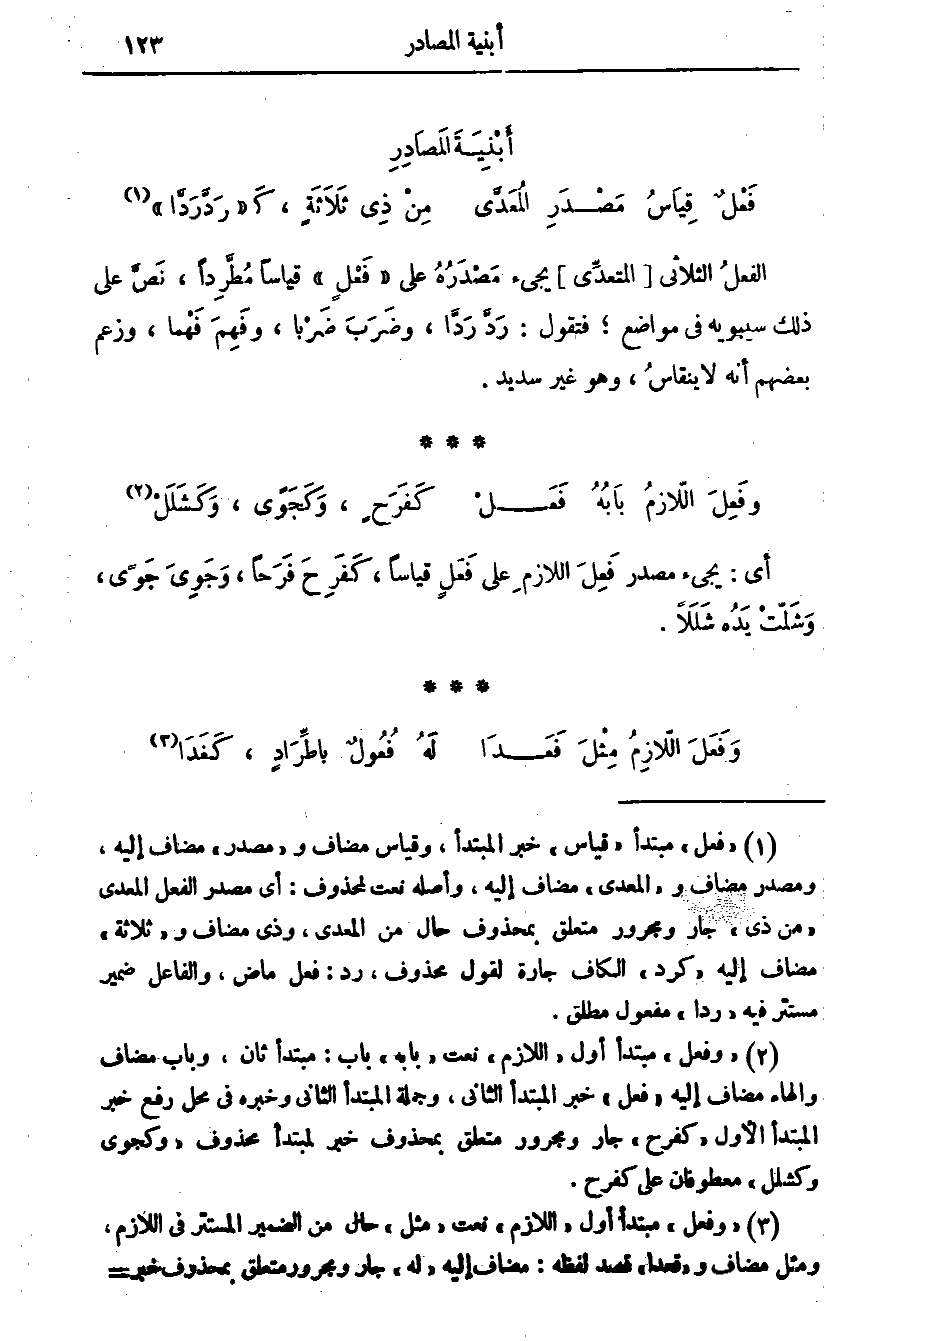 أبنية المصادر ١٢٣
أَبْنِيَةُ المَصَادِرِ
فَعْلٌ قِيَاسُ مَصْدَرِ المُعَدَّى مِنْ ذِى ثَلَاثَةٍ ، كَـ « رَدَّ رَدًّا » (١)
الفعلُ الثلاثى [ المتعدِّى ] يجىء مَصْدَرُهُ على « فَعْلٍ » قياساً مُطَّرِداً ، نَصَّ على
ذلك سيبويه فى مواضع ؛ فتقول : رَدَّ رَدًّا ، وضَرَبَ ضَرْبا ، وفَهِمَ فَهْما ، وزعم
بعضهم أنه لا ينقاسُ ، وهو غير سديد .
* * *
وفَعِلَ اللّازمُ بَابُهُ فَعَلْ كَفَرَحٍ ، وَكَجَوًى ، وَكَشَلَلْ (٢)
أى : يجىء مصدر فَعِلَ اللازمِ على فَعَلٍ قياساً ، كَفَرِحَ فَرَحاً ، وَجَوِىَ جَوًى ،
وَشَلَّتْ يَدُه شَلَلاً .
* * *
وَفَعَلَ اللّازِمُ مِثْلَ قَعَدَا لَهُ فُعُولٌ باطِّرَادٍ ، كَغَدَا (٣)
(١) « فعل » مبتدأ « قياس » خبر المبتدأ ، وقياس مضاف و « مصدر » مضاف إليه ،
ومصدر مضاف و « المعدى » مضاف إليه ، وأصله نعت لمحذوف : أى مصدر الفعل المعدى
« من ذى » جار ومجرور متعلق بمحذوف حال من المعدى ، وذى مضاف و « ثلاثة »
مضاف إليه « كرد » الكاف جارة لقول محذوف ، رد : فعل ماض ، والفاعل ضمير
مستتر فيه « ردا » مفعول مطلق .
(٢) « وفعل » مبتدأ أول « اللازم » نعت « بابه » باب : مبتدأ ثان ، وباب مضاف
والهاء مضاف إليه « فعل » خبر المبتدأ الثانى ، وجملة المبتدأ الثانى وخبره فى محل رفع خبر
المبتدأ الأول « كفرح » جار ومجرور متعلق بمحذوف خبر لمبتدأ محذوف « وكجوى
وكشلل » معطوفان على كفرح .
(٣) « وفعل » مبتدأ أول « اللازم » نعت « مثل » حال من الضمير المستتر فى اللازم ،
ومثل مضاف و « قعدا » قصد لفظه : مضاف إليه « له » جار ومجرور متعلق بمحذوف خبر =